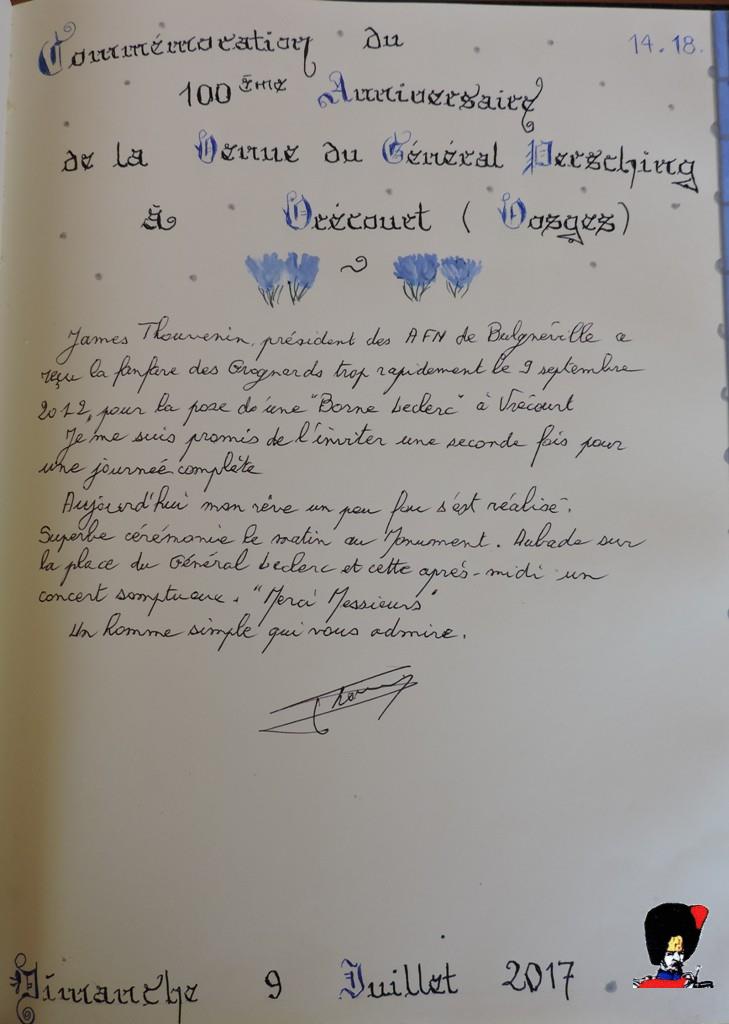 Commémoration du 14.18.
100ème Anniversaire
de la Venue du Général Persching
à Vrécourt (Vosges)
James Thouvenin, président des AFN de Bulgnéville a
reçu la fanfare des Grognards trop rapidement le 9 septembre
2012, pour la pose de'une "Borne Leclerc" à Vrécourt
Je me suis promis de l'inviter une seconde fois pour
une journeé complète
Aujourd'hui mon rêve un peu fou s'est réalisé.
Superbe cérémonie le matin au Monument. Aubade sur
la place du Général Leclerc et cette après-midi un
concert somptueux. "Merci Messieurs"
Un homme simple qui vous admire.
Dimanche 9 Juillet 2017